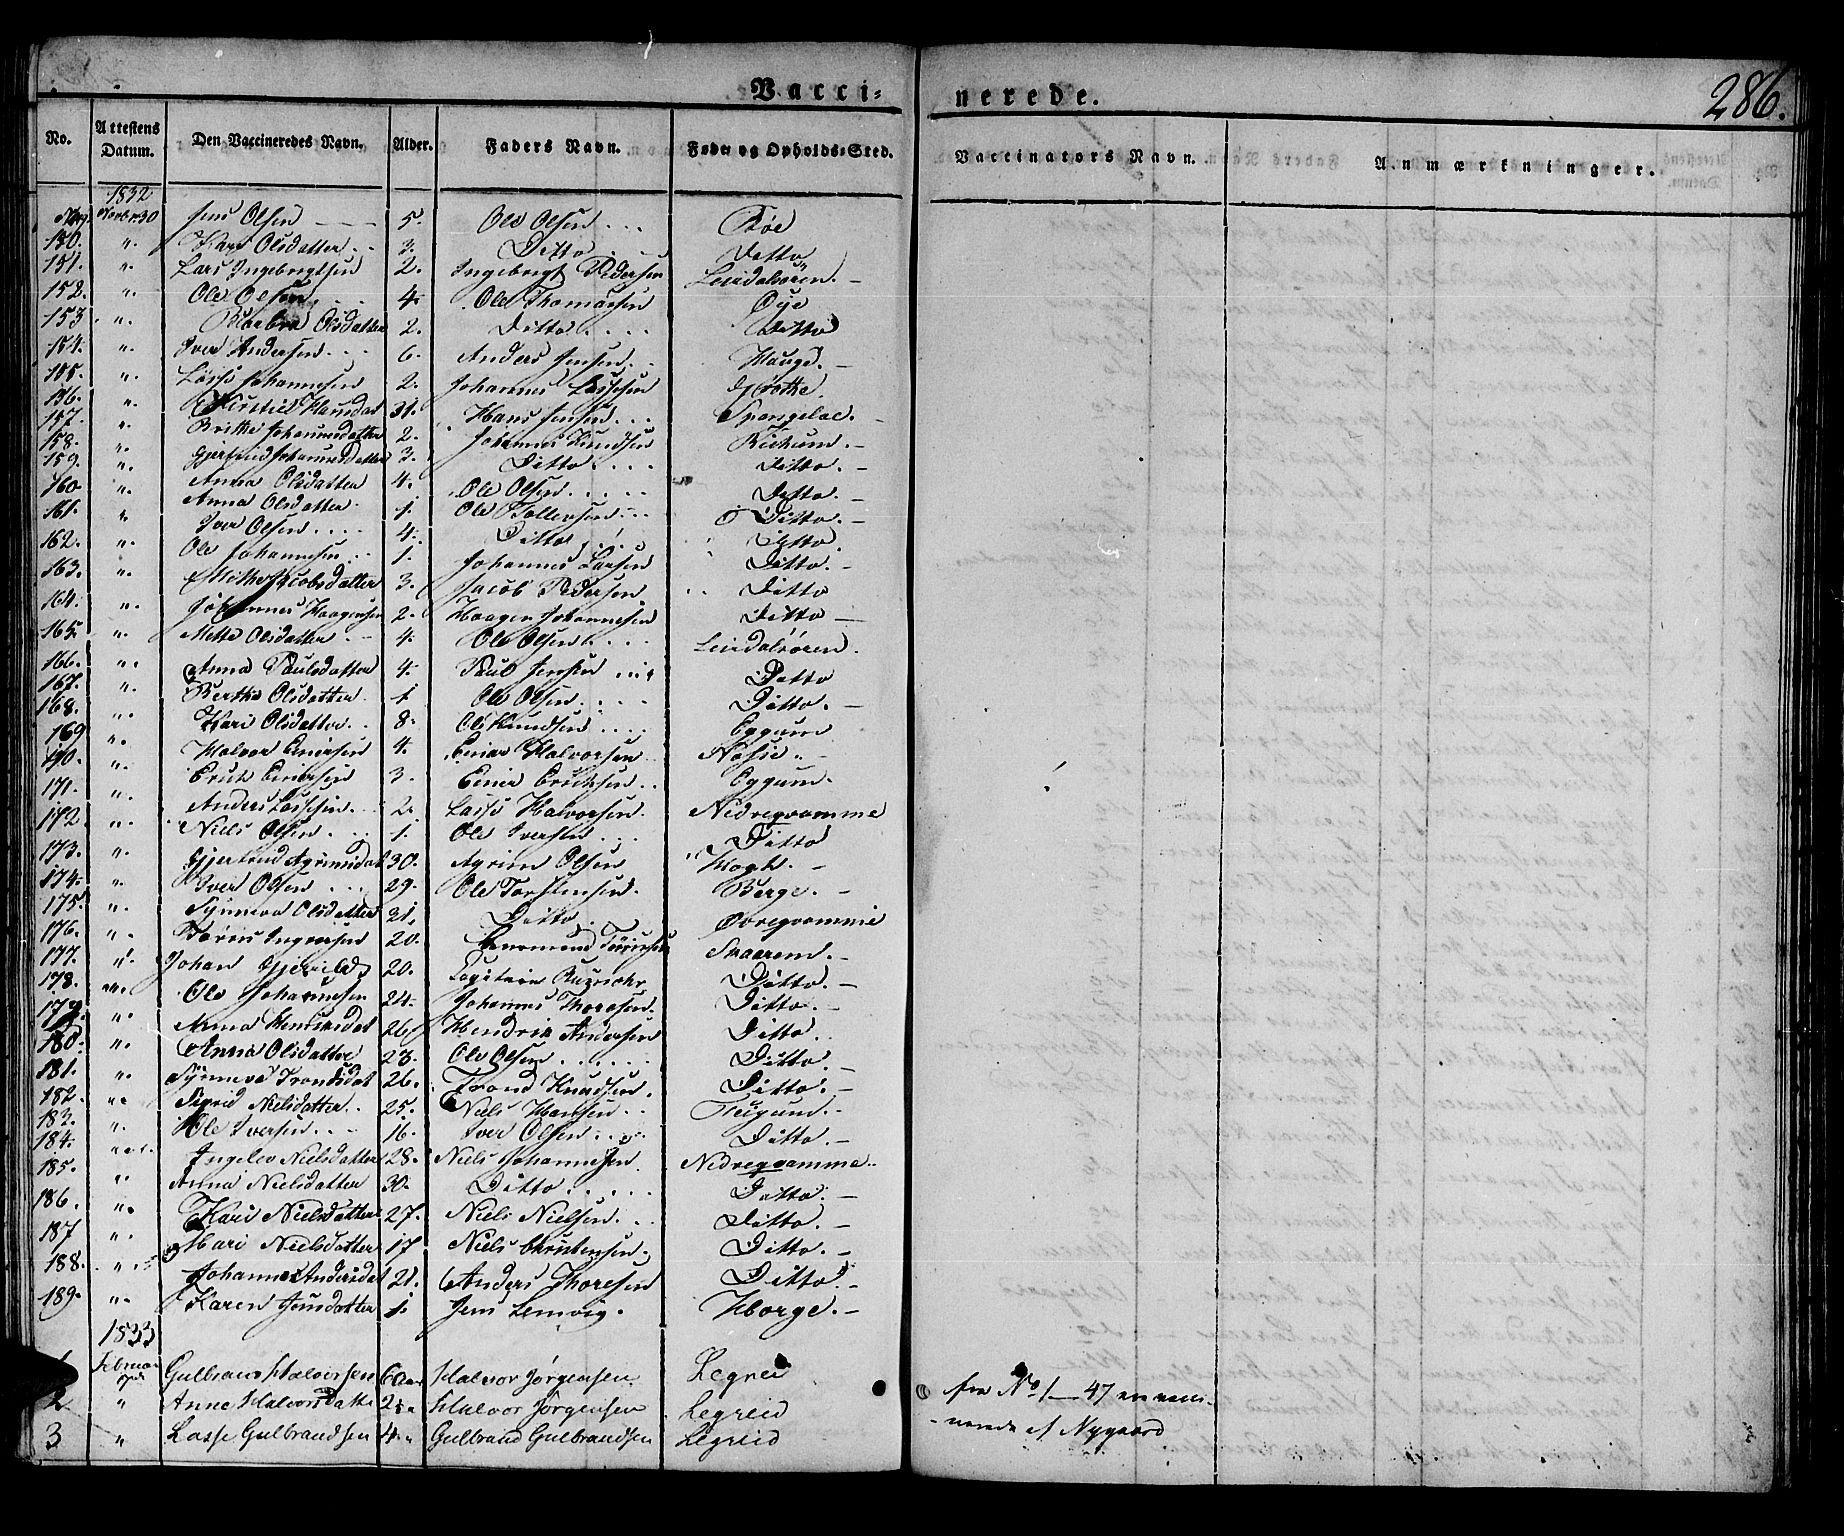 Vacci- nerede. 286.
No. Attestens Datum. Den Vaccineredes Navn. Alder. Faders Navn. Føde og Opholds-Sted. Vaccinators Navn. Anmærkninger.
1832
Novbr. 30 Jens Olsen 5. Ole Olsen Bøe
150. " Kari Olsdatter 3. Ditto Ditto
151. " Lars Ingebrigtsen 2. Ingebrigt Pedersen Leirdalsøren.
152. " Ole Olsen 4. Ole Thomassen Øye
153. " Olsdatter 2. Ditto Ditto
154. " Iver Andersen 6. Anders Jensen Hauge.
155. " Lasse Johannesen 2. Johannes Lassesen
156. " Hansdat 31. Hans Jensen Spangeloe.
157. " Britha Johannesdatter 2. Johannes Knudsen Rickum.
158. " Gjertrud Johannesdatter 3. Ditto Ditto.
159. " Anna Olsdatter 4. Ole Olsen Ditto.
160. " Anna Olsdatter 1. Ole Tollevsen Ditto.
161. " Iver Olsen 4. Ditto Ditto.
162. " Ole Johannesen 1. Johannes Larsen Ditto.
163. " Mithe Jacobsdatter 3. Jacob Pedersen Ditto
164. " Johannes Haagensen 2. Haagen Johannesen Ditto
165. " Mette Olsdatter 4. Ole Olsen Leirdalsøren.
166. " Anna Paulsdatter 4. Paul Jensen Ditto
167. " Bertha Olsdatter 1 Ole Olsen Ditto.
168. " Kari Olsdatter 8. Ole Knudsen Eggum
169 " Halvor Einersen 4. Einar Halvorsen Nosie.
170. " Erick Einersen 3. Einer Ericksen Eggum.
171. " Anders Lassesen 2. Lasse Halvorsen Nedregvamme
172. " Niels Olsen 1. Ole Iversen Ditto
173. " Gjertrud Agrimsdat 30. Agrim Olsen
174. " Iver Olsen 29. Ole Torstensen. Berge.
175. " Synneva Olsdatter 21. Ditto Øvregvamme
176. " Ingversen 20. Skaarem.
177. " Johan 20. Capitain Ditto.
178. " Ole Johannesen 24. Johannes Thoresen. Ditto.
179. " Anna Henricsdat 26. Hendrik Andersen Ditto.
180. " Anna Olsdatter 23. Ole Olsen Ditto.
181. " Synneve Trondsdat 26. Trond Knudsen. Ditto.
182. " Sigrid Nielsdatter 25. Niels Hansen Teigum.
183. " Ole Iversen 16. Iver Olsen Ditto.
184. " Ingelev Nielsdatter 28. Niels Johannesen. Nedregvamme.
185. " Anna Nielsdatter 30. Ditto Ditto.
186. " Kari Nielsdatter 27. Niels Nielsen. Ditto.
187 " Mari Nielsdatter 17 Niels Christensen. Ditto.
188. " Johanne Andersdat 21. Anders Thoresen Ditto.
189. " Karen Jensdatter 1. Jens Lemvig. Horge.
1833
1 Februar Gulbrand Halvorsen 6 Aar Halvor Jørgensen Legreid
2 " Anne Halvorsdatter 2 " Halvor Jørgensen Legreid
3 " Lasse Gulbrandsen 4 " Gulbrand Gulbrandsen Legreid
fra No 1 - 47 ere vacci-
nerede af Nygaard